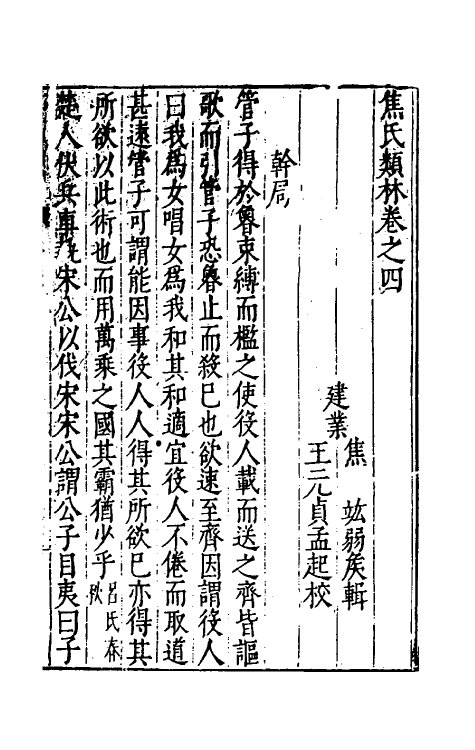 焦氏類林卷之四
建業
焦　竑弱侯輯
王元貞孟起校
幹局
管子得於魯束縛而檻之使役人載而送之齊皆謳
歌而引管子恐魯止而殺巳也欲速至齊因謂役人
曰我爲女唱女爲我和其和適宜役人不倦而取道
甚速管子可謂能因事役人人得其所欲巳亦得其
所欲以此術也而用萬乘之國其霸猶少乎呂氏春秋
楚人伏兵車執宋公以伐宋宋公謂公子目夷曰子